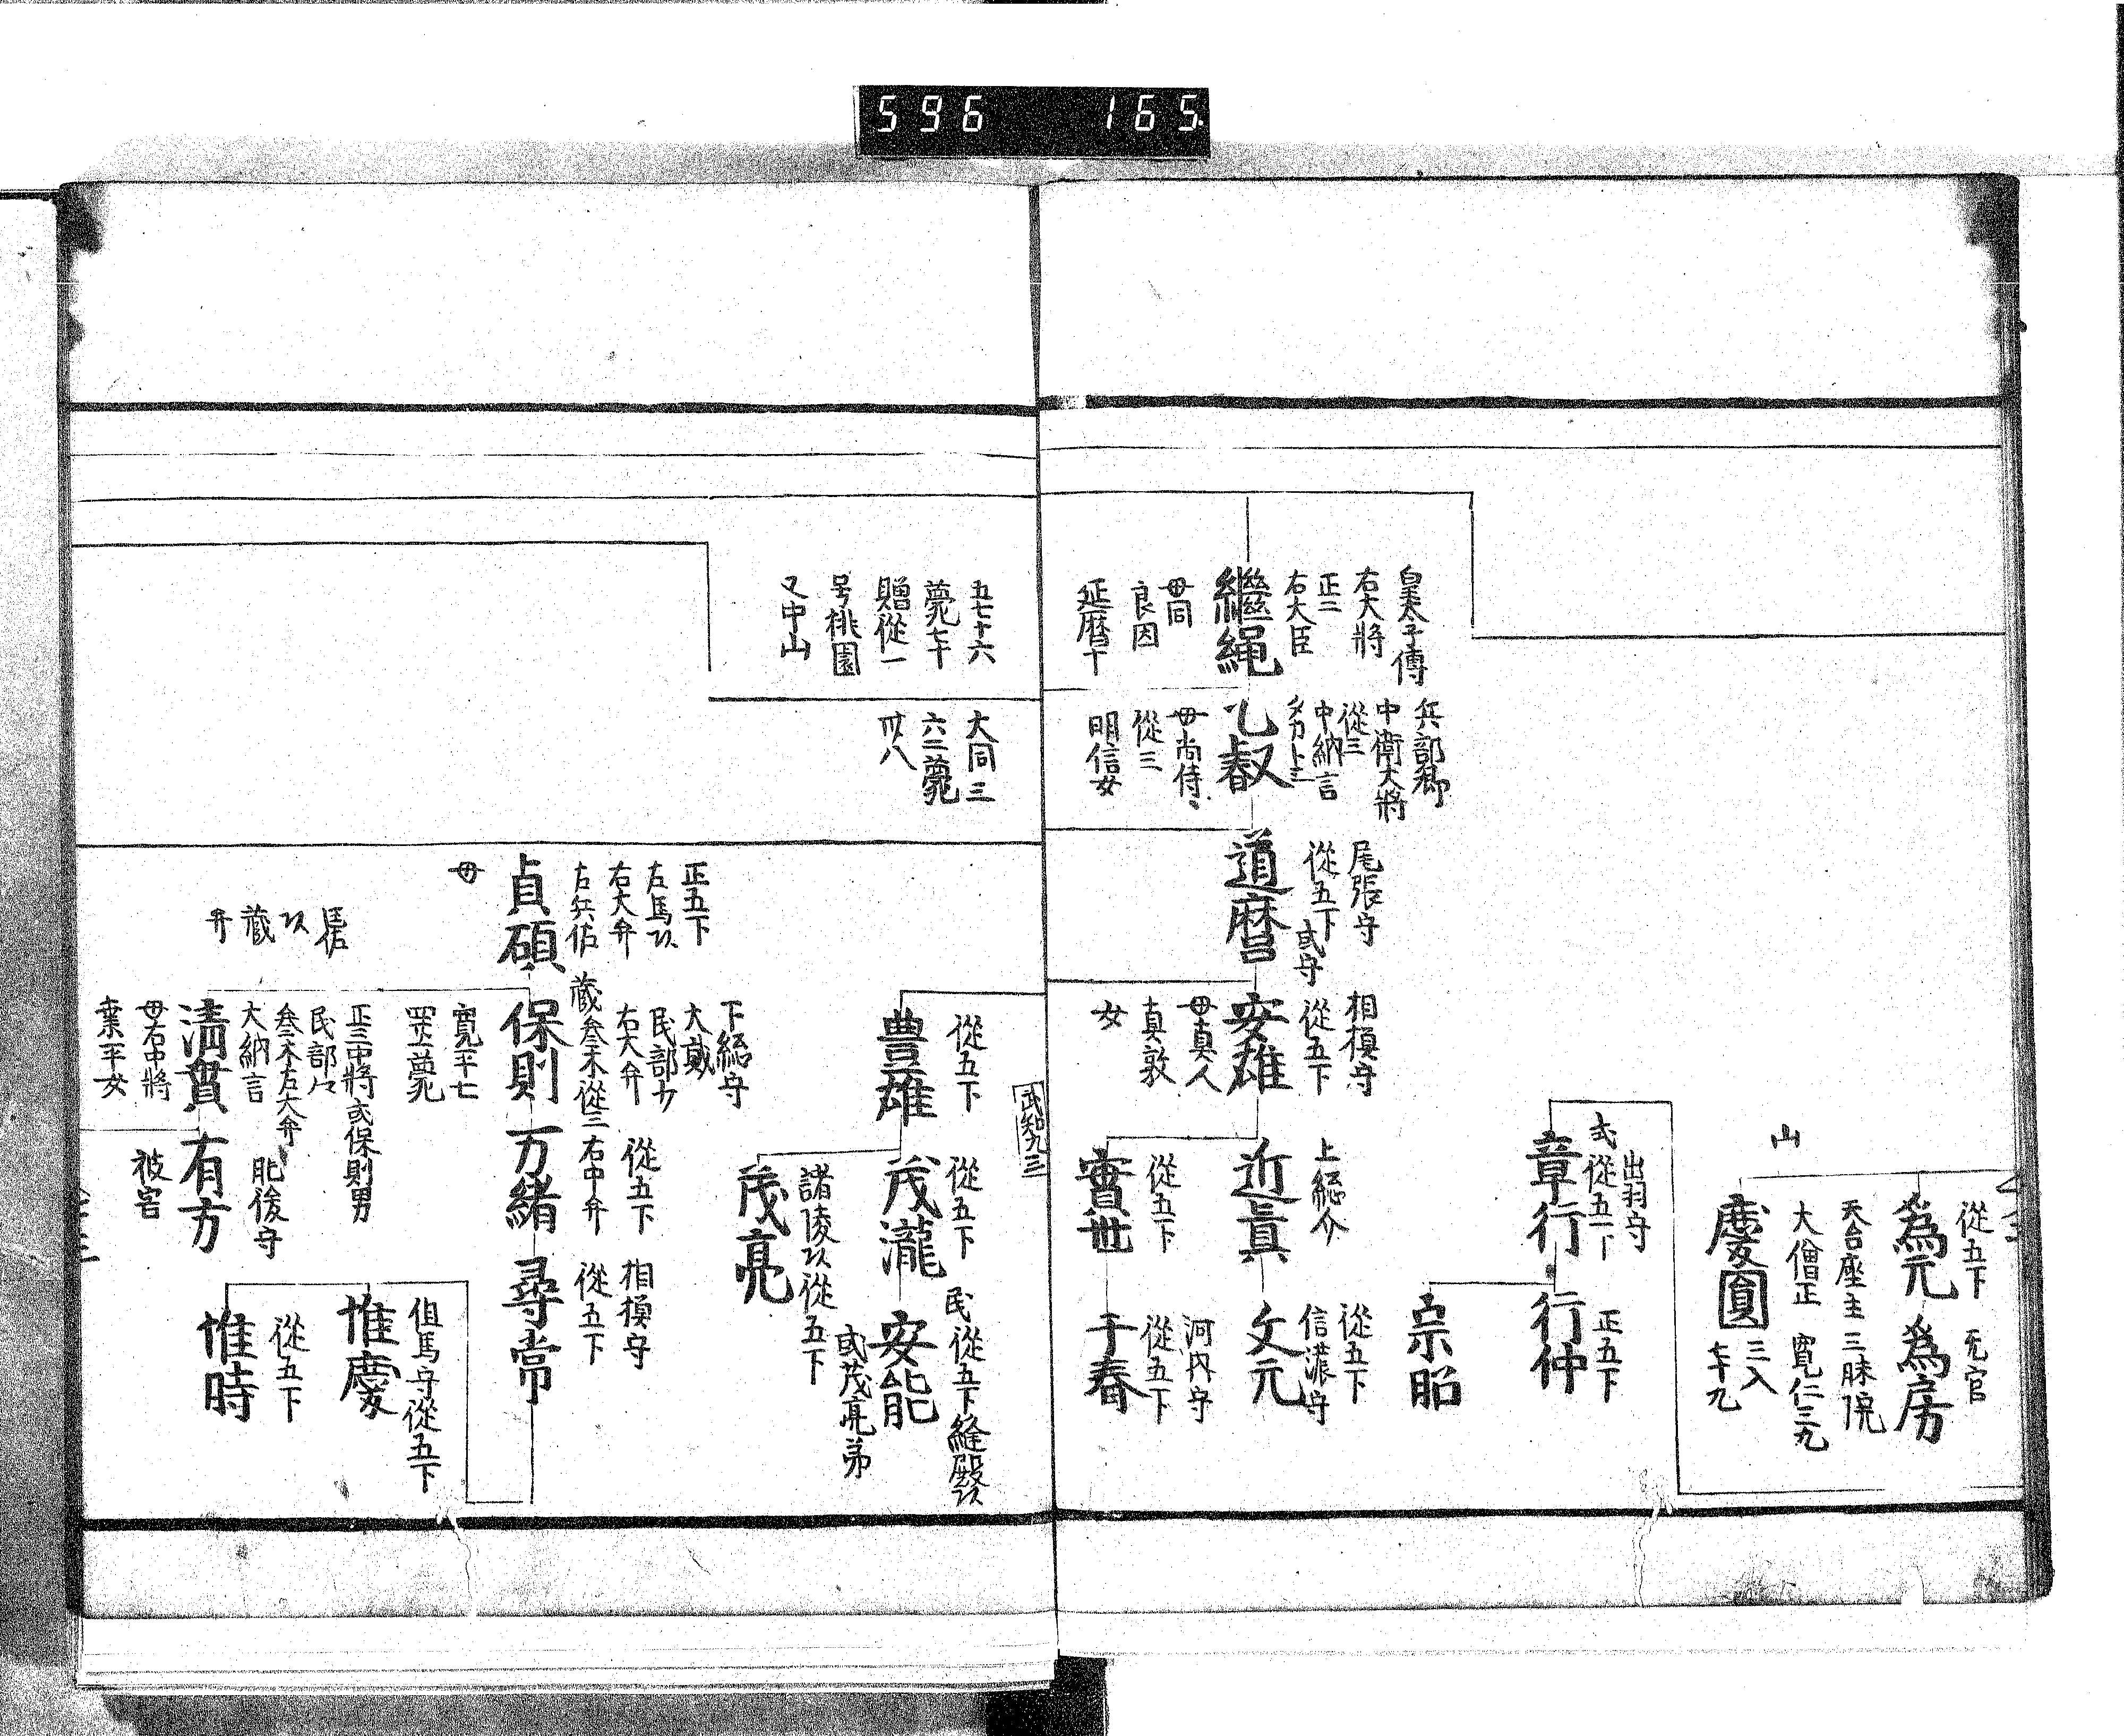 596 165
從五下
爲元
无官
爲房
山
天台座主 三昧院
大僧正 寛仁三九
慶圓
三入
七十九
出羽守
從五下
章行
正五下
行仲
宗昭
皇太子傅
右大將
正二
右大臣
繼縄
母同
良因
延暦十
兵部卿
中衛大將
從三
中納言
乙叡
母尚侍
從三
明信女
尾張守
從五下
或守
道麿
相摸守
從五下
安雄
母真人
真敦
女
上総介
近眞
從五下
信濃守
文元
從五下
實世
河内守
從五下
于春
武知九三
五七十六
薨七十
贈從一
号桃園
又中山
大同三
六二薨
卌八
從五下
豊雄
從五下
茂瀧
民從五下縫殿
安能
或茂亮弟
諸陵從五下
茂亮
正五下
左馬
右大弁
右兵佐
貞碩
母
下総守
大貳
民部少
右大弁
蔵参木從三
保則
寛平七
四廿一薨
從五下
右中弁
万緒
相摸守
從五下
尋常
但馬守從五下
惟慶
從五下
惟時
蔵
弁
正三中將或保則男
民部
参木左大弁
大納言
清貫
母右中將
業平女
肥後守
有方
被害